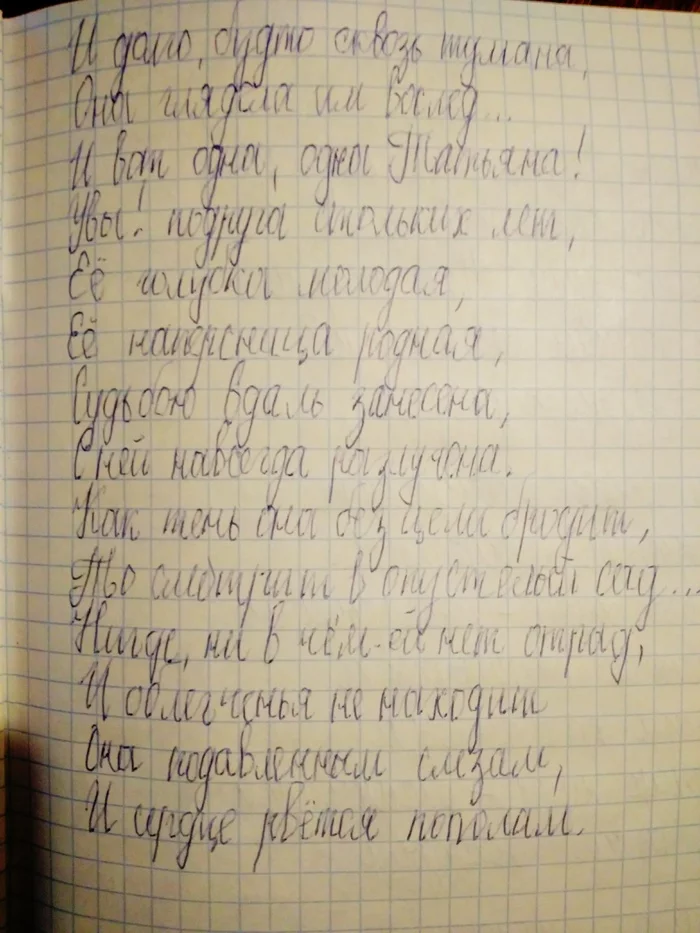 И долго, будто сквозь тумана,
Она глядела им вослед...
И вот одна, одна Татьяна!
Увы! подруга стольких лет,
Её голубка молодая,
Её наперсница родная,
Судьбою вдаль занесена,
С ней навсегда разлучена.
Как тень она без цели бродит,
То смотрит в опустелый сад...
Нигде, ни в чём ей нет отрад,
И облегченья не находит
Она подавленным слезам,
И сердце рвётся пополам.